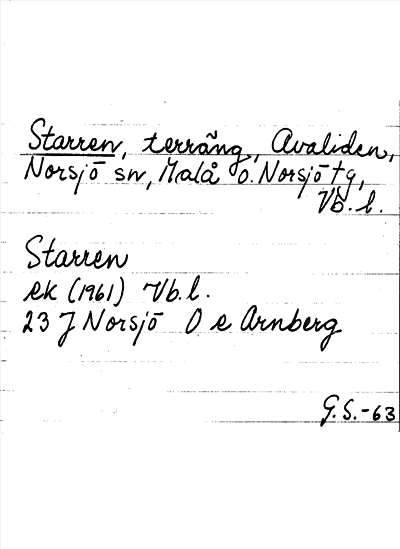 Starren, terräng, Avaliden,
Norsjö sn, Malå o. Norsjö tg,
Vb. l.
Starren
ek (1961) Vb. l.
23 J Norsjö O e Arnberg
G.S.-63